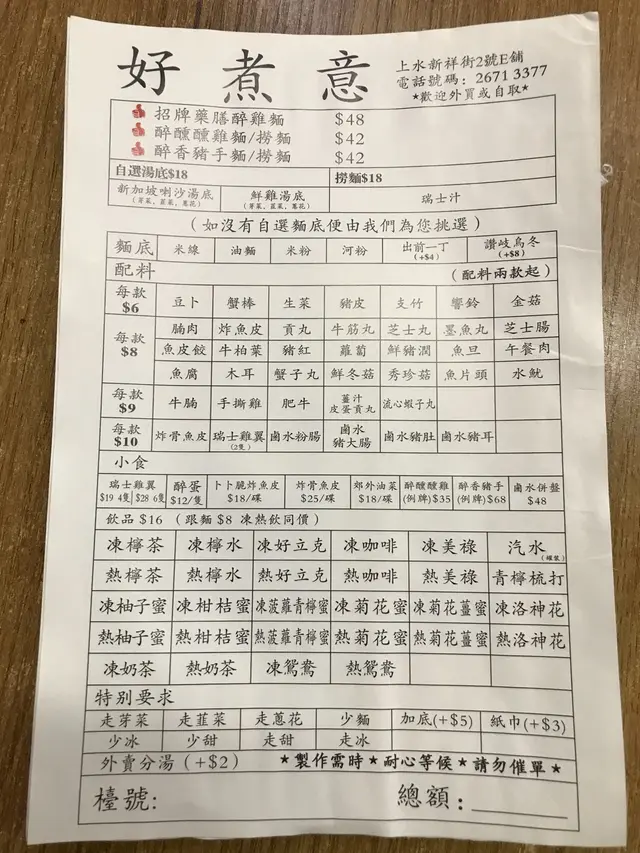 好煮意
上水新祥街2號E舖
電話號碼: 2671 3377
★歡迎外買或自取★
招牌藥膳醉雞麵 $48
醉醺醺雞麵/撈麵 $42
醉香豬手麵/撈麵 $42
自選湯底$18 撈麵$18
新加坡喇沙湯底 鮮雞湯底 瑞士汁
(芽菜、韮菜、蔥花) (芽菜、韮菜、蔥花)
(如沒有自選麵底便由我們為您挑選)
麵底 米線 油麵 米粉 河粉 出前一丁(+$4) 讚岐烏冬(+$8)
配料 (配料兩款起)
每款$6 豆卜 蟹棒 生菜 豬皮 支竹 響鈴 金菇
每款$8 腩肉 炸魚皮 貢丸 牛筋丸 芝士丸 墨魚丸 芝士腸
魚皮餃 牛柏葉 豬紅 蘿蔔 鮮豬潤 魚旦 午餐肉
魚腐 木耳 蟹子丸 鮮冬菇 秀珍菇 魚片頭 水魷
每款$9 牛腩 手撕雞 肥牛 薑汁皮蛋貢丸 流心蝦子丸
每款$10 炸骨魚皮 瑞士雞翼(2隻) 鹵水粉腸 鹵水豬大腸 鹵水豬肚 鹵水豬耳
小食
瑞士雞翼 醉蛋 卜卜脆炸魚皮 炸骨魚皮 郊外油菜 醉醺醺雞 醉香豬手 鹵水併盤
$19 4隻 $28 6隻 $12/隻 $18/碟 $25/碟 $18/碟 (例牌)$35 (例牌)$68 $48
飲品 $16 (跟麵 $8 凍熱飲同價)
凍檸茶 凍檸水 凍好立克 凍咖啡 凍美祿 汽水(罐裝)
熱檸茶 熱檸水 熱好立克 熱咖啡 熱美祿 青檸梳打
凍柚子蜜 凍柑桔蜜 凍菠蘿青檸蜜 凍菊花蜜 凍菊花薑蜜 凍洛神花
熱柚子蜜 熱柑桔蜜 熱菠蘿青檸蜜 熱菊花蜜 熱菊花薑蜜 熱洛神花
凍奶茶 熱奶茶 凍鴛鴦 熱鴛鴦
特别要求
走芽菜 走韮菜 走蔥花 少麵 加底(+$5) 紙巾(+$3)
少冰 少甜 走甜 走冰
外賣分湯 (+$2) ★製作需時★耐心等候★請勿催單★
檯號: 總額: